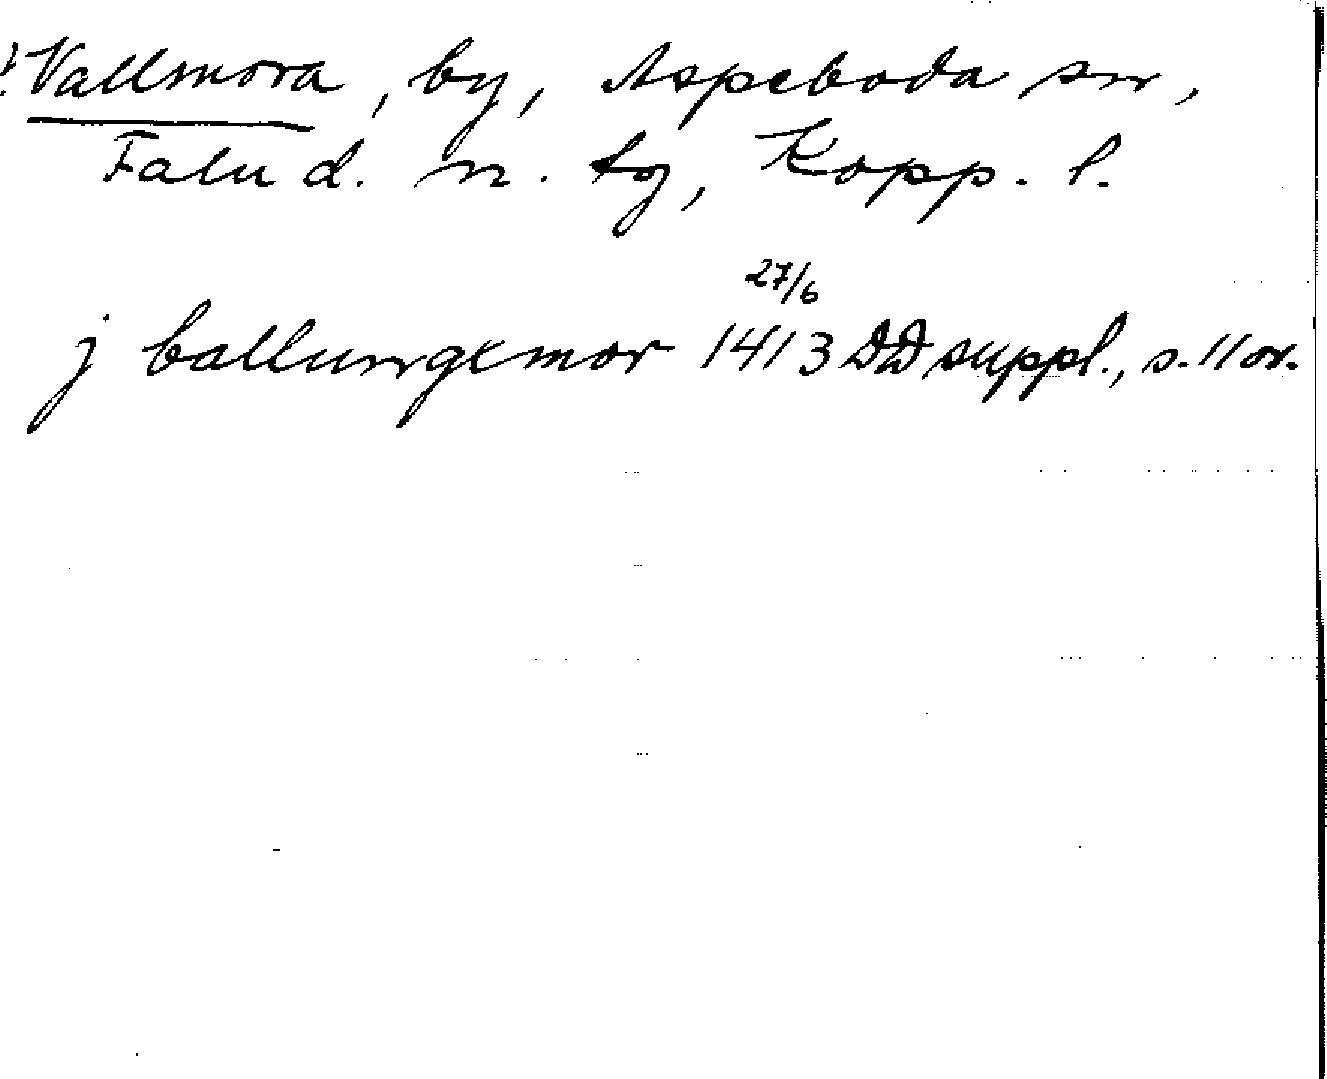 Vallmora, by, Aspeboda sn,
Falu d. n. tg, Kopp. l.
27/6
j ballungemor 1413 DD suppl., s. 11 or.